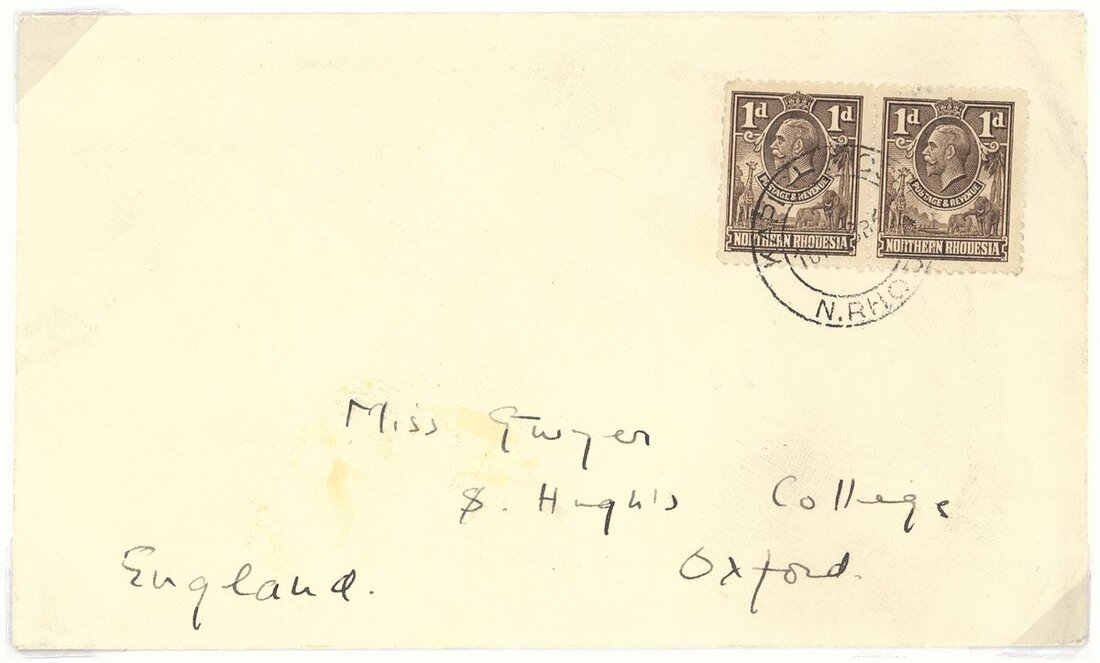 1d 1d 1d 1d
POSTAGE & REVENUE POSTAGE & REVENUE
NORTHERN RHODESIA NORTHERN RHODESIA
N.RHO
Miss Gwyer
S. Hugh's College
Oxford.
England.